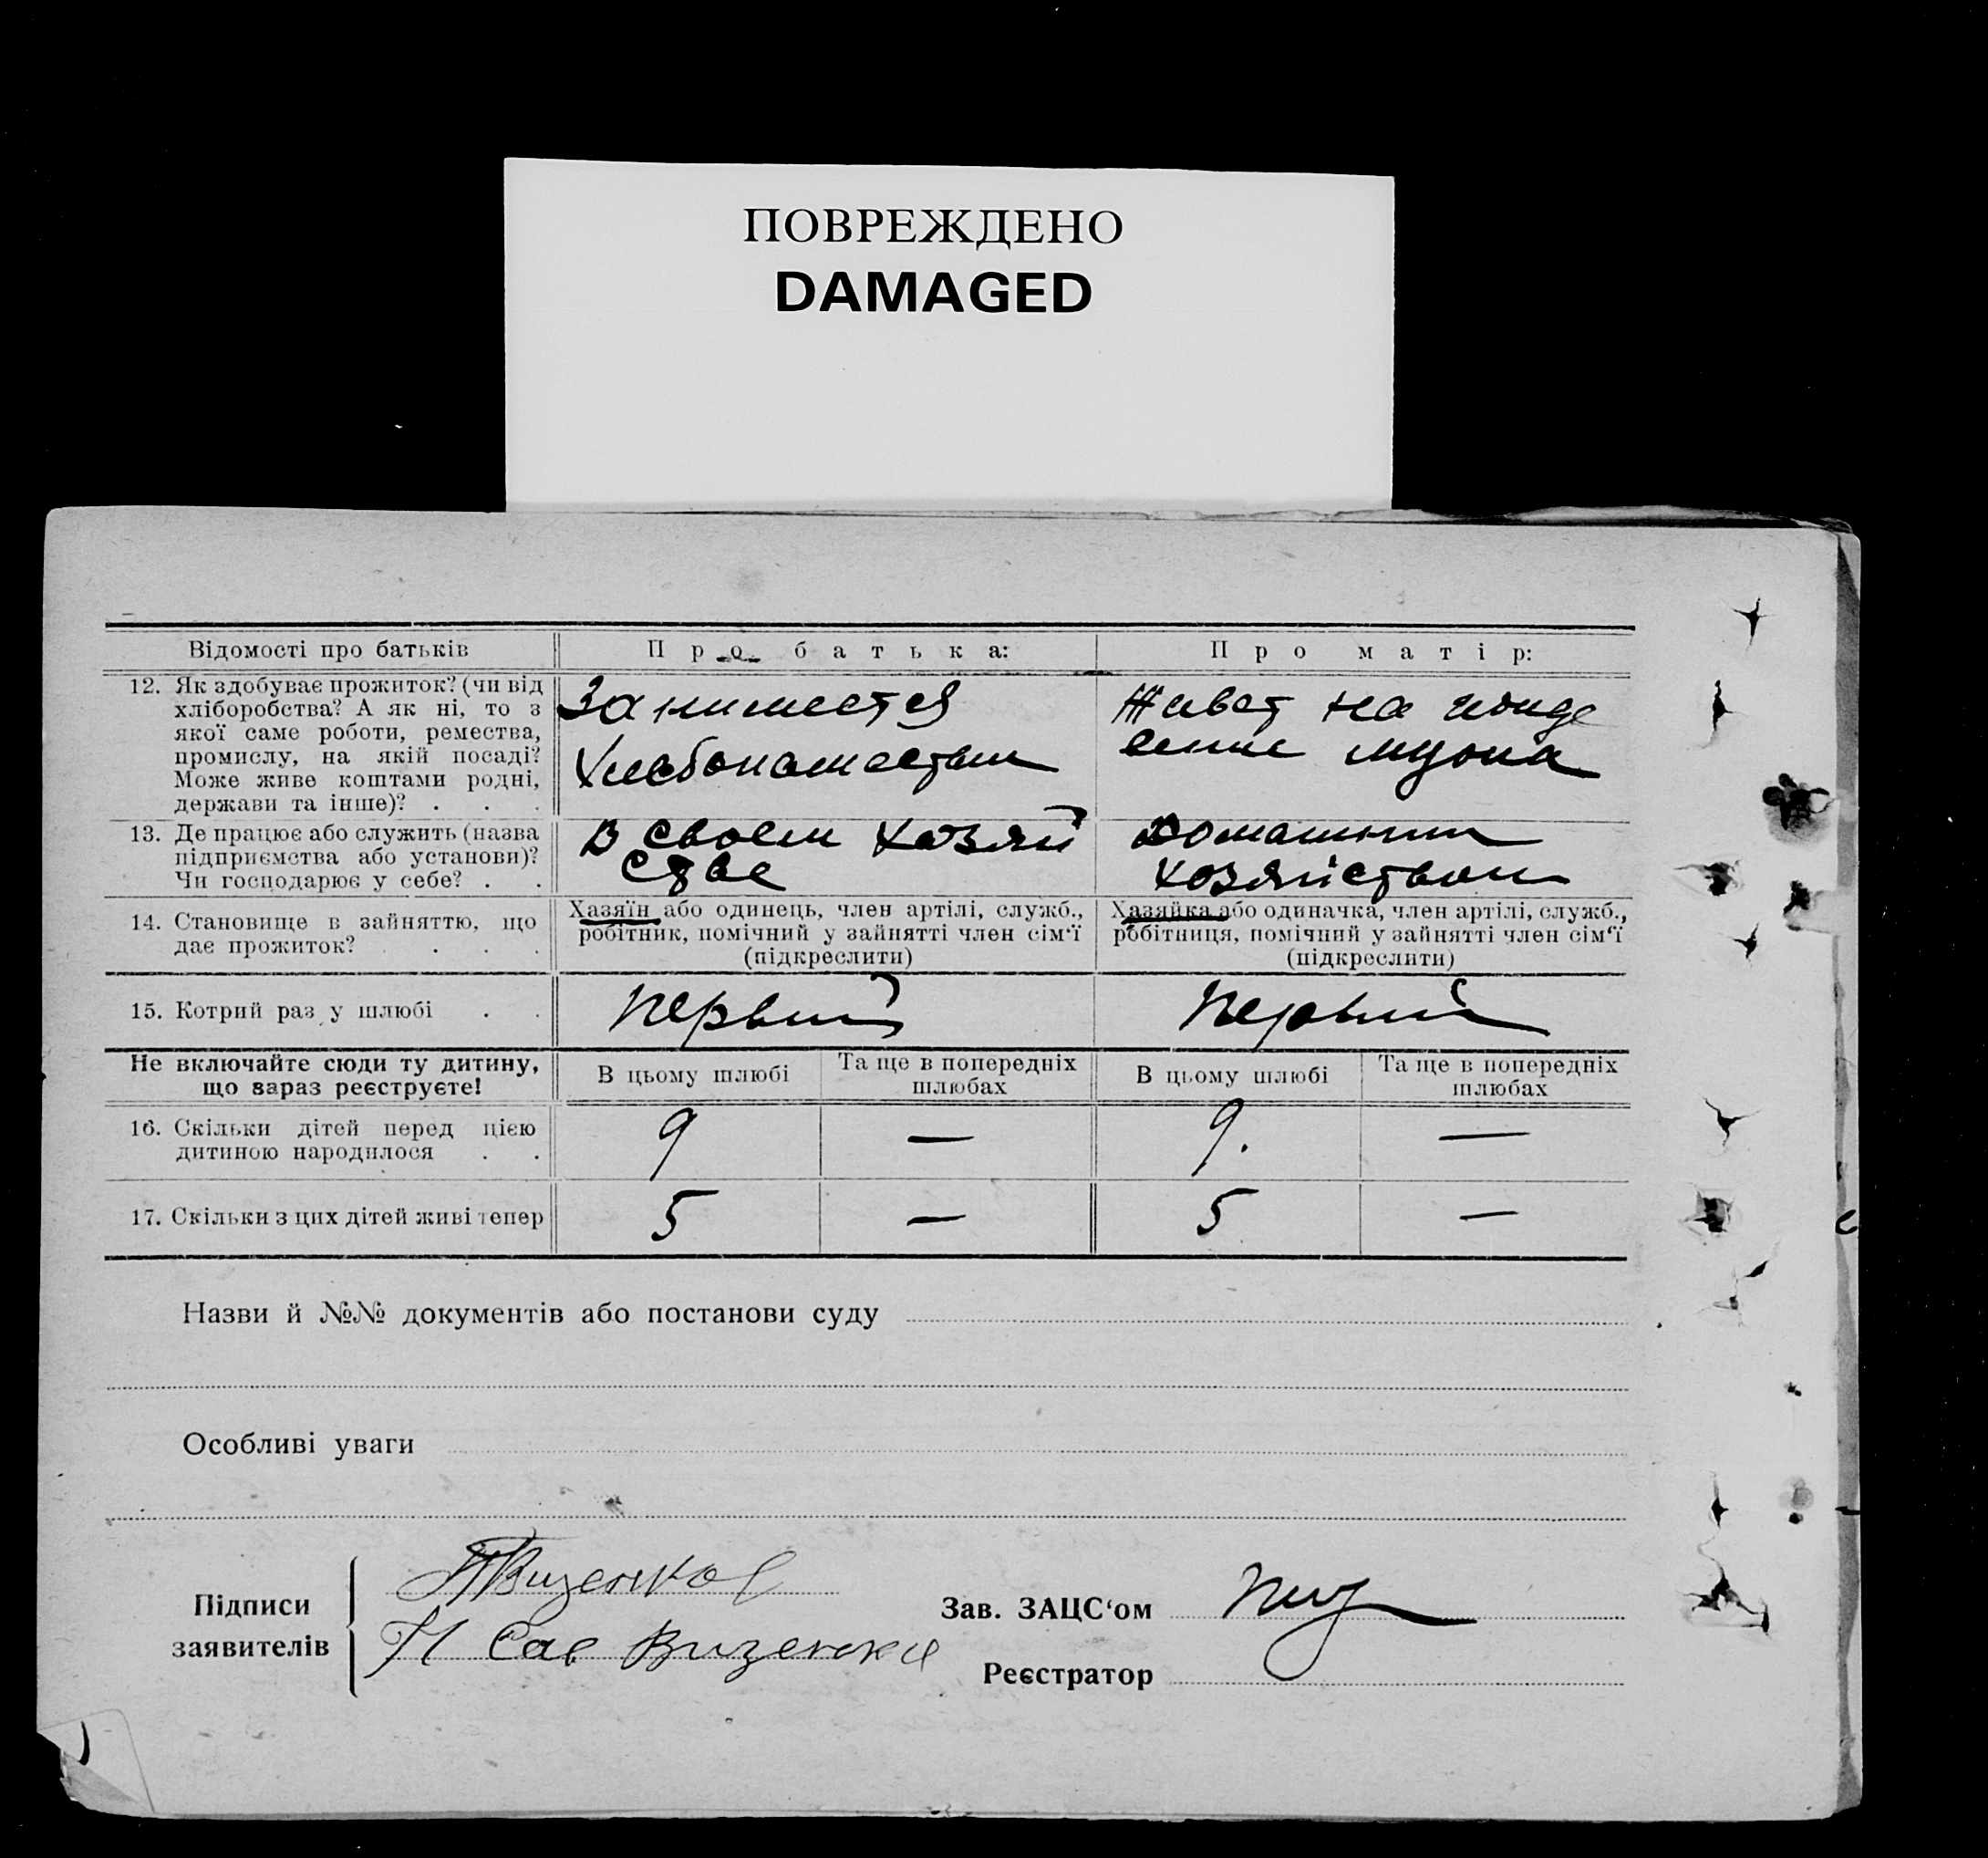 ПОВРЕЖДЕНО
DAMAGED
Відомості про батьків
Про батька:
Про матір:
12. Як здобуває прожиток? (чи від
хліборобства? А як ні, то з
якої саме роботи, ремества,
промислу, на якій посаді?
Може живе коштами родні,
держави та інше)? . . .
Занимается
Хлебопашеством
Живет на ижде
ении мужа
13. Де працює або служить (назва
підприємства або установи)?
Чи господарює у себе? . .
В своем хозяй
стве
Домашним
хозяйством
14. Становище в зайняттю, що
дає прожиток? . . . .
Хазяїн або одинець, член артілі, служб.,
робітник, помічний у зайнятті член сім'ї
(підкреслити)
Хазяйка або одиначка, член артілі, служб.,
робітниця, помічний у зайнятті член сім'ї
(підкреслити)
15. Котрий раз у шлюбі . .
Первый
Первый
Не включайте сюди ту дитину,
що вараз реєструєте!
В цьому шлюбі
Та ще в попередніх
шлюбах
В цьому шлюбі
Та ще в попередніх
шлюбах
16. Скільки дітей перед цією
дитиною народилося . .
9
—
9.
—
17. Скільки з цих дітей живі тепер
5
—
5
—
Назви й №№ документів або постанови суду
Особливі уваги
Підписи
заявителів
Визенко
Визенка
Зав. ЗАЦС'ом
Реєстратор